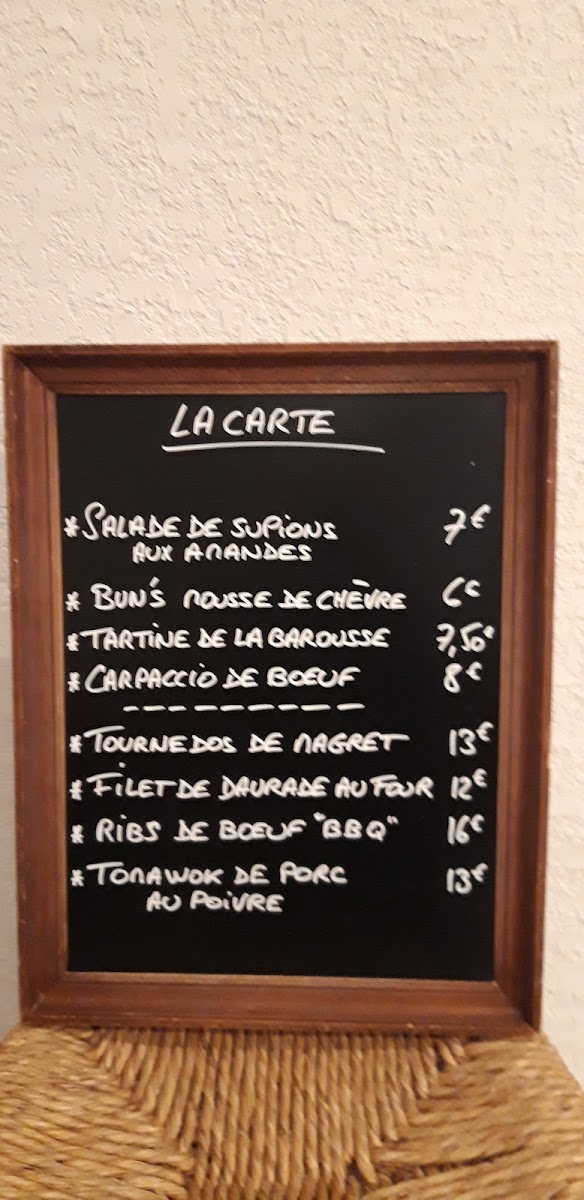 LA CARTE
* SALADE DE SUPIONS 7€
AUX AMANDES
* BUN'S MOUSSE DE CHÈVRE 6€
* TARTINE DE LA BAROUSSE 7,50€
* CARPACCIO DE BOEUF 8€
----------
* TOURNEDOS DE MAGRET 13€
* FILET DE DAURADE AU FOUR 12€
* RIBS DE BOEUF "BBQ" 16€
* TOMAWOK DE PORC 13€
AU POIVRE